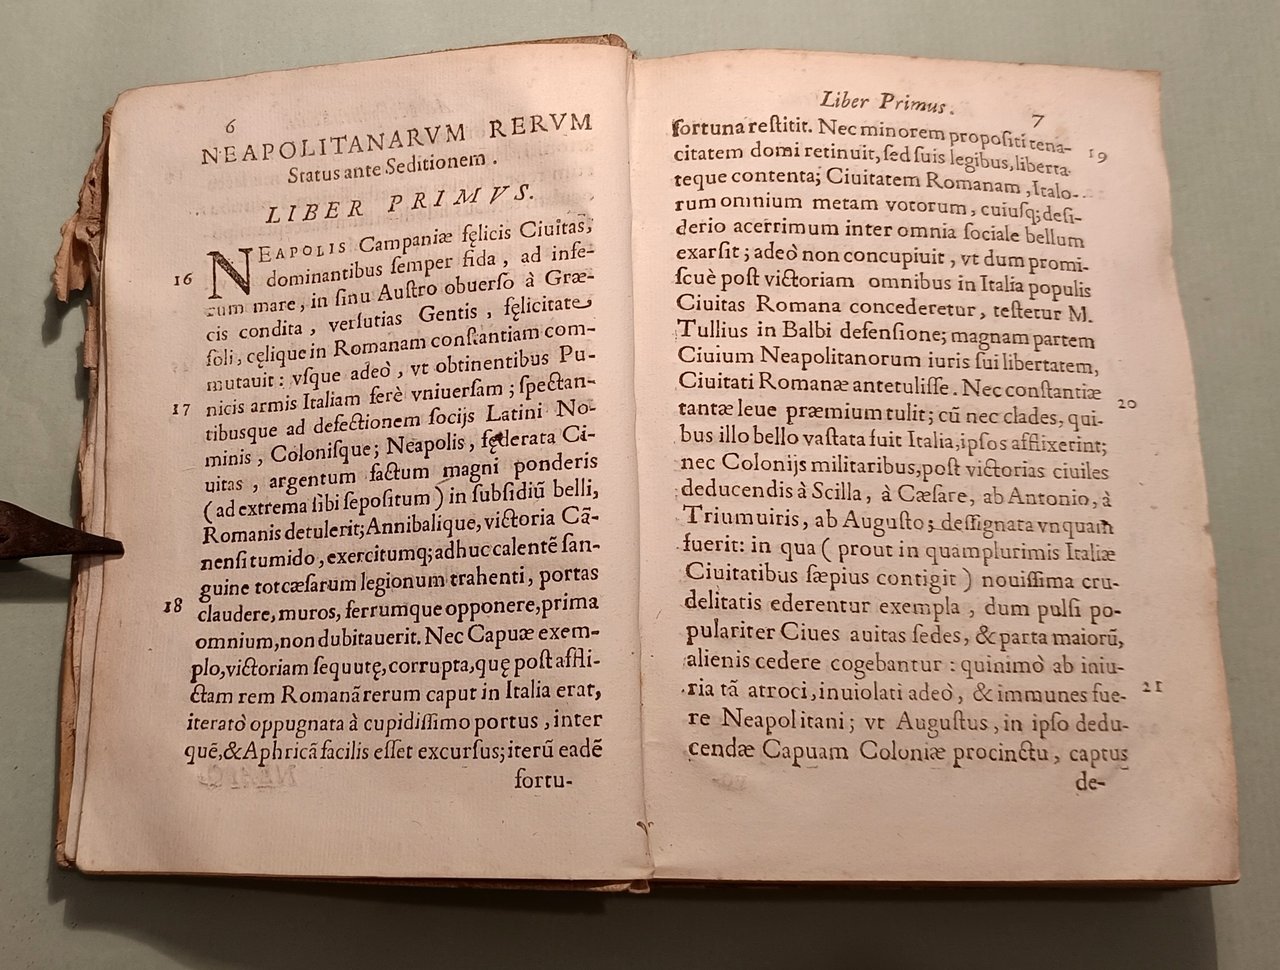 6
NEAPOLITANARVM RERVM
Status ante Seditionem.
LIBER PRIMVS.
NEAPOLIS Campaniæ fęlicis Ciuitas,
16 dominantibus ſemper fida, ad infe-
rum mare, in ſinu Auſtro obuerſo à Græ-
cis condita, verſutias Gentis, fęlicitate
ſoli, cęlique in Romanam conſtantiam com-
mutauit: vſque adeò, vt obtinentibus Pu-
17 nicis armis Italiam ferè vniuerſam; ſpectan-
tibusque ad defectionem ſocijs Latini No-
minis, Coloniſque; Neapolis, fęderata Ci-
uitas, argentum factum magni ponderis
(ad extrema ſibi ſepoſitum) in ſubſidiũ belli,
Romanis detulerit; Annibalique, victoria Cã-
nenſi tumido, exercitumq; adhuc calentẽ ſan-
guine totcæſarum legionum trahenti, portas
18 claudere, muros, ferrumque opponere, prima
omnium, non dubitauerit. Nec Capuæ exem-
plo, victoriam ſequutę, corrupta, quę poſt affli-
ctam rem Romanã rerum caput in Italia erat,
iteratò oppugnata à cupidiſſimo portus, inter
quẽ, & Aphricã facilis eſſet excurſus; iterũ eadẽ
fortu-
Liber Primus. 7
fortuna reſtitit. Nec minorem propoſiti tena- 19
citatem domi retinuit, ſed ſuis legibus, liberta-
teque contenta; Ciuitatem Romanam, Italo-
rum omnium metam votorum, cuiuſq; deſi-
derio acerrimum inter omnia ſociale bellum
exarſit; adeò non concupiuit, vt dum promi-
ſcuè poſt victoriam omnibus in Italia populis
Ciuitas Romana concederetur, teſtetur M.
Tullius in Balbi defenſione; magnam partem
Ciuium Neapolitanorum iuris ſui libertatem,
Ciuitati Romanæ antetuliſſe. Nec conſtantiæ 20
tantæ leue præmium tulit; cũ nec clades, qui-
bus illo bello vaſtata fuit Italia, ipſos afflixerint;
nec Colonijs militaribus, poſt victorias ciuiles
deducendis à Scilla, à Cæſare, ab Antonio, à
Triumuiris, ab Auguſto; deſſignata vnquam
fuerit: in qua (prout in quamplurimis Italiæ
Ciuitatibus ſæpius contigit) nouiſſima cru-
delitatis ederentur exempla, dum pulſi po-
pulariter Ciues auitas ſedes, & parta maiorũ,
alienis cedere cogebantur: quinimò ab iniu-
ria tã atroci, inuiolati adeò, & immunes fue- 21
re Neapolitani; vt Auguſtus, in ipſo dedu-
cendæ Capuam Coloniæ procinctu, captus
de-